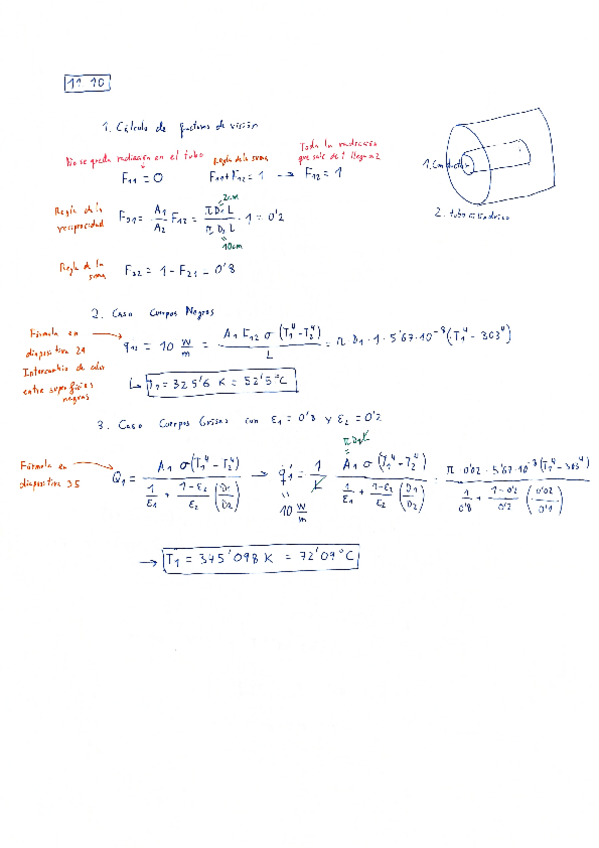 1º 10
1. Cálculo de factores de visión
No se queda radiación en el tubo
Regla de la suma
Toda la radiación
que sale de 1 llega a 2
F11 = 0
F11+F12 = 1 → F12 = 1
1. Conductor
2. tubo
2cm
Regla de la
reciprocidad
F21 = A1/A2 F12 = π D1 L / π D2 L · 1 = 0'2
10cm
Regla de la
suma
F22 = 1 - F21 = 0'8
2. Caso Cuerpos Negros
Fórmula en
diapositiva 24
Intercambio de calor
entre superficies
negras
q12 = 10 W/m = A1 F12 σ (T1⁴-T2⁴) / L = π D1 · 1 · 5'67·10⁻⁸ (T1⁴ - 303⁴)
↳ T1 = 325'6 K = 52'5°C
3. Caso Cuerpos Grises con ε1 = 0'8 y ε2 = 0'2
Fórmula en
diapositiva 35
Q1 = A1 σ(T1⁴-T2⁴) / (1/ε1 + 1-ε2/ε2 (D1/D2)) → q1' = 1/L A1 σ (T1⁴-T2⁴) / (1/ε1 + 1-ε2/ε2 (D1/D2)) = π 0'02 · 5'67·10⁻⁸ (T1⁴-303⁴) / (1/0'8 + 1-0'2/0'2 (0'02/0'1))
10 W/m
→ T1 = 345'098 K = 72'09°C